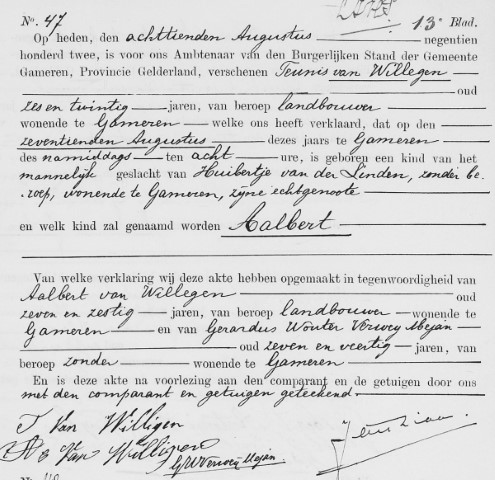 No. 47 13e Blad.
Op heden, den achttienden Augustus negentien
honderd twee, is voor ons Ambtenaar van den Burgerlijken Stand der Gemeente
Gameren, Provincie Gelderland, verschenen Teunis van Willegen
oud
zes en twintig jaren, van beroep landbouwer
wonende te Gameren welke ons heeft verklaard, dat op den
zeventienden Augustus dezes jaars te Gameren
des namiddags ten acht ure, is geboren een kind van het
mannelijk geslacht van Huibertje van der Linden, zonder be-
roep, wonende te Gameren, zijne echtgenoote
en welk kind zal genaamd worden Aalbert
Van welke verklaring wij deze akte hebben opgemaakt in tegenwoordigheid van
Aalbert van Willegen oud
zeven en zestig jaren, van beroep landbouwer wonende te
Gameren en van Gerardus Wouter Verwey Mejan
oud zeven en veertig jaren, van
beroep zonder wonende te Gameren
En is deze akte na voorlezing aan den comparant en de getuigen door ons
met den comparant en getuigen geteekend
T Van Willigen
Van Willigen
GWVerweij Mejan